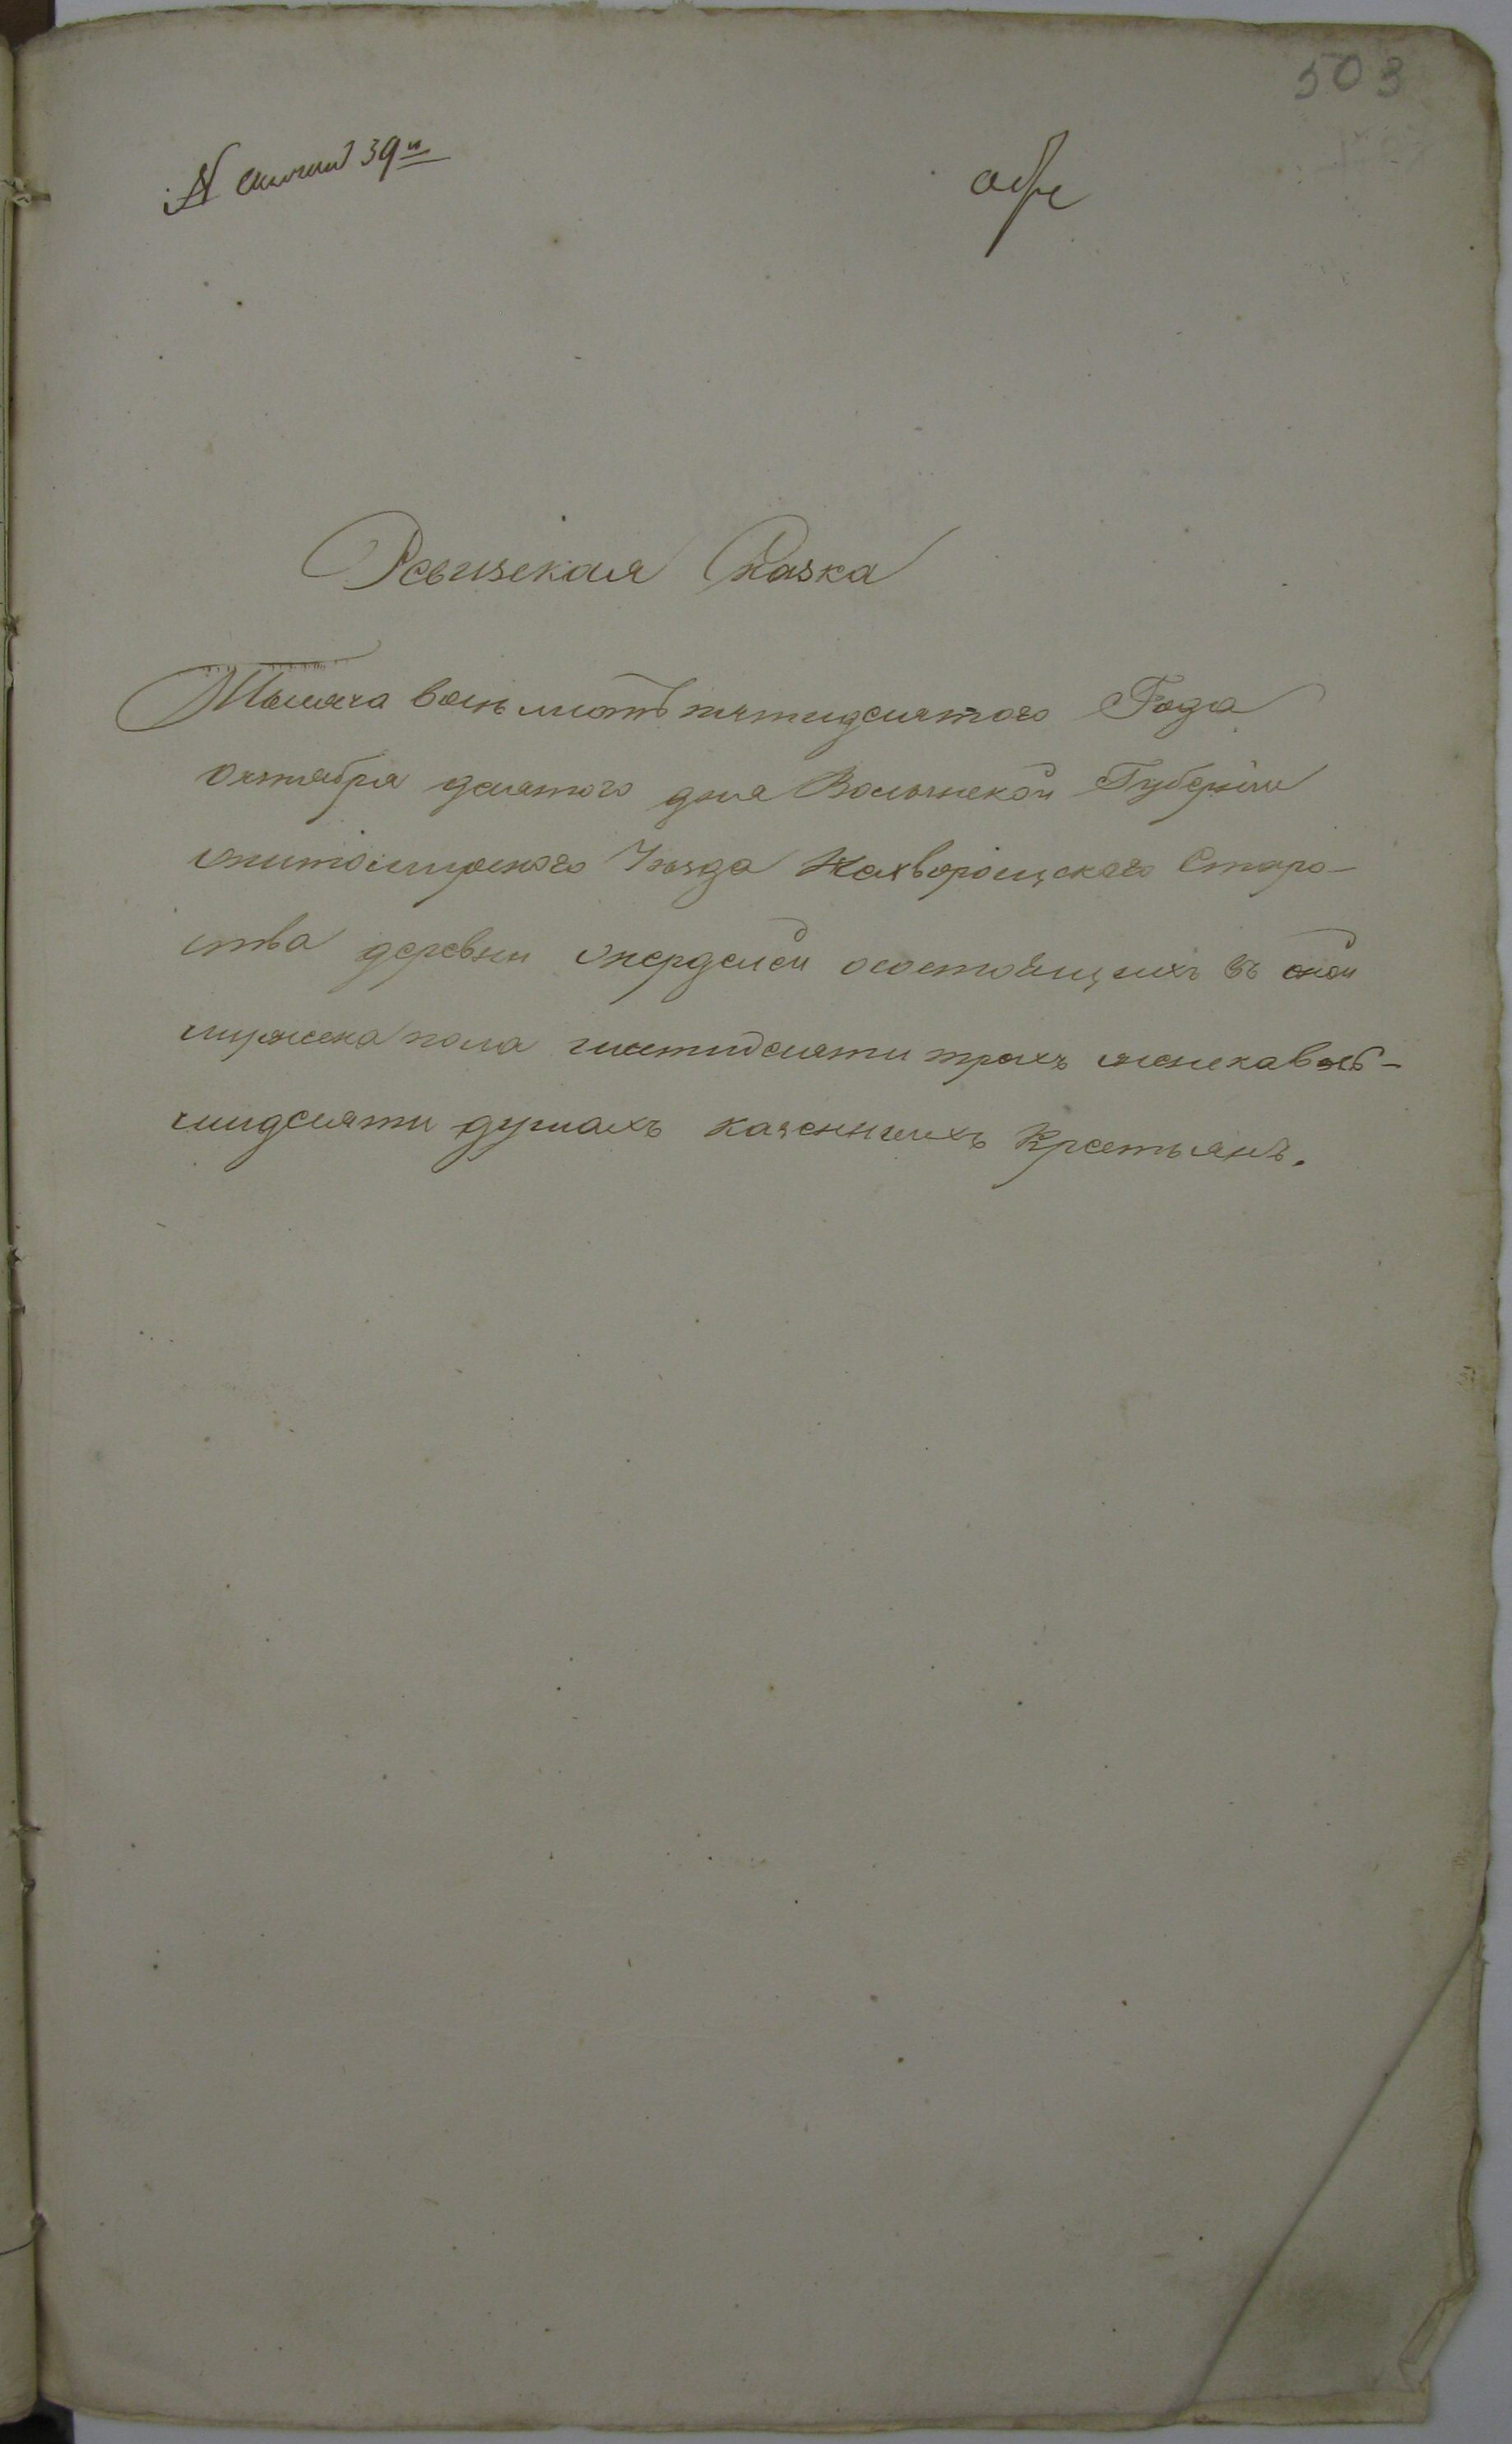 503
39
Ревизская Сказка
Тысяча восьмсотъ пятидесятого Года
октября десятого дня Волынской Губерніи
житомирского Уѣзда Старо-
ства деревни жерделей осостоящихъ въ оной
мужеска пола шестидесяти трохъ женска восѣ-
мидесяти душахъ казенныхъ Крестьянъ.